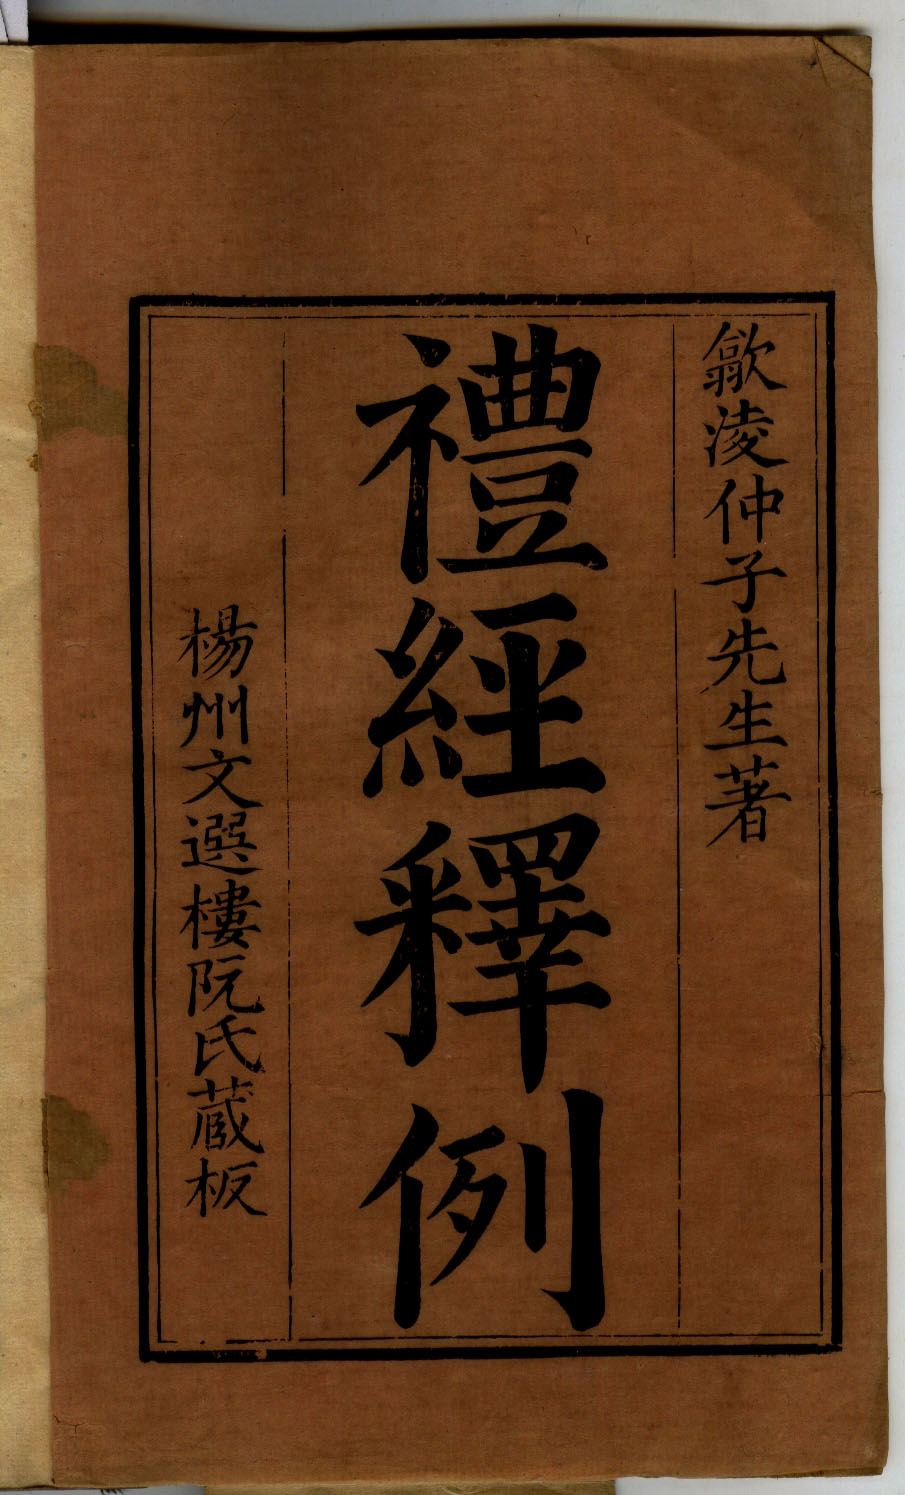 歙淩仲子先生著
禮經釋例
楊州文選樓阮氏蔵板